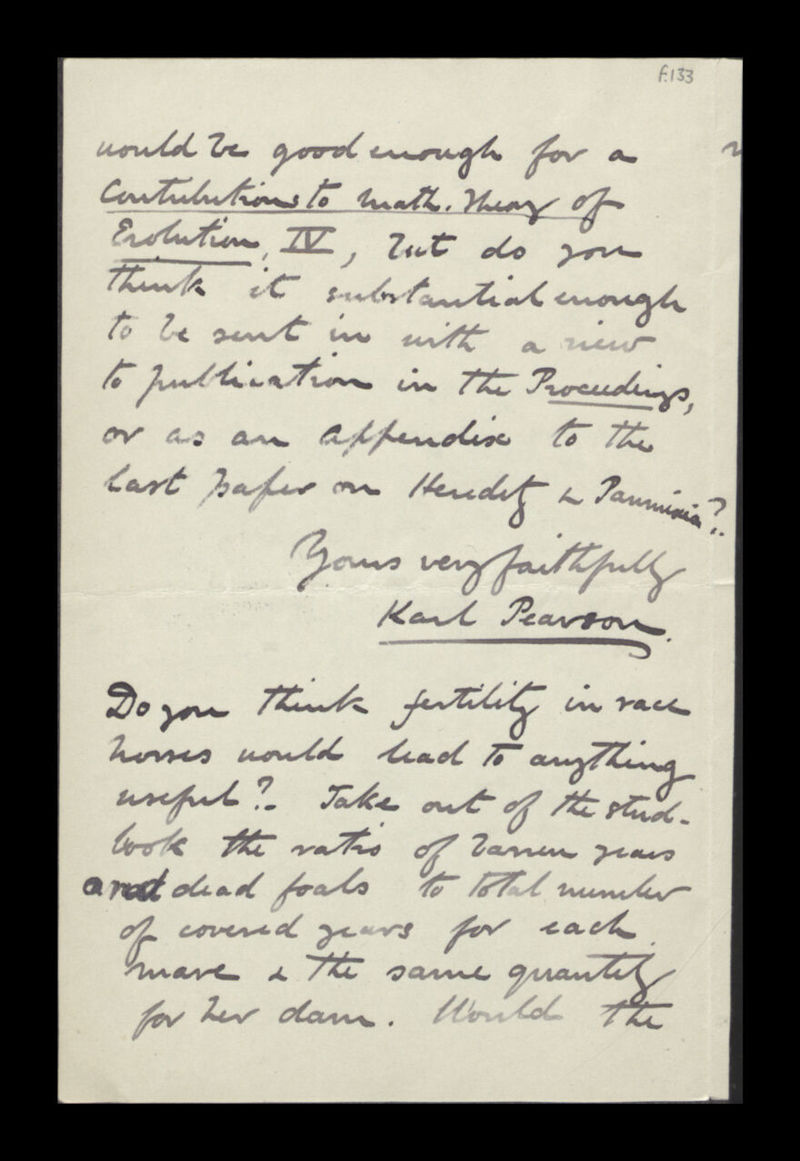 f.133
would be good enough for a
Contributions to Math. Theory of
Evolution, IV, but do you
think it substantial enough
to be sent in with a view
to publication in the Proceedings,
or as an appendix to the
last paper on Heredity & Panmixia?
Yours very faithfully
Karl Pearson.
Do you think fertility in race
horses would lead to anything
useful? Take out of the stud-
book the ratio of barren years
and dead foals to total number
of covered years for each
mare & the same quantity
for her dam. Would the